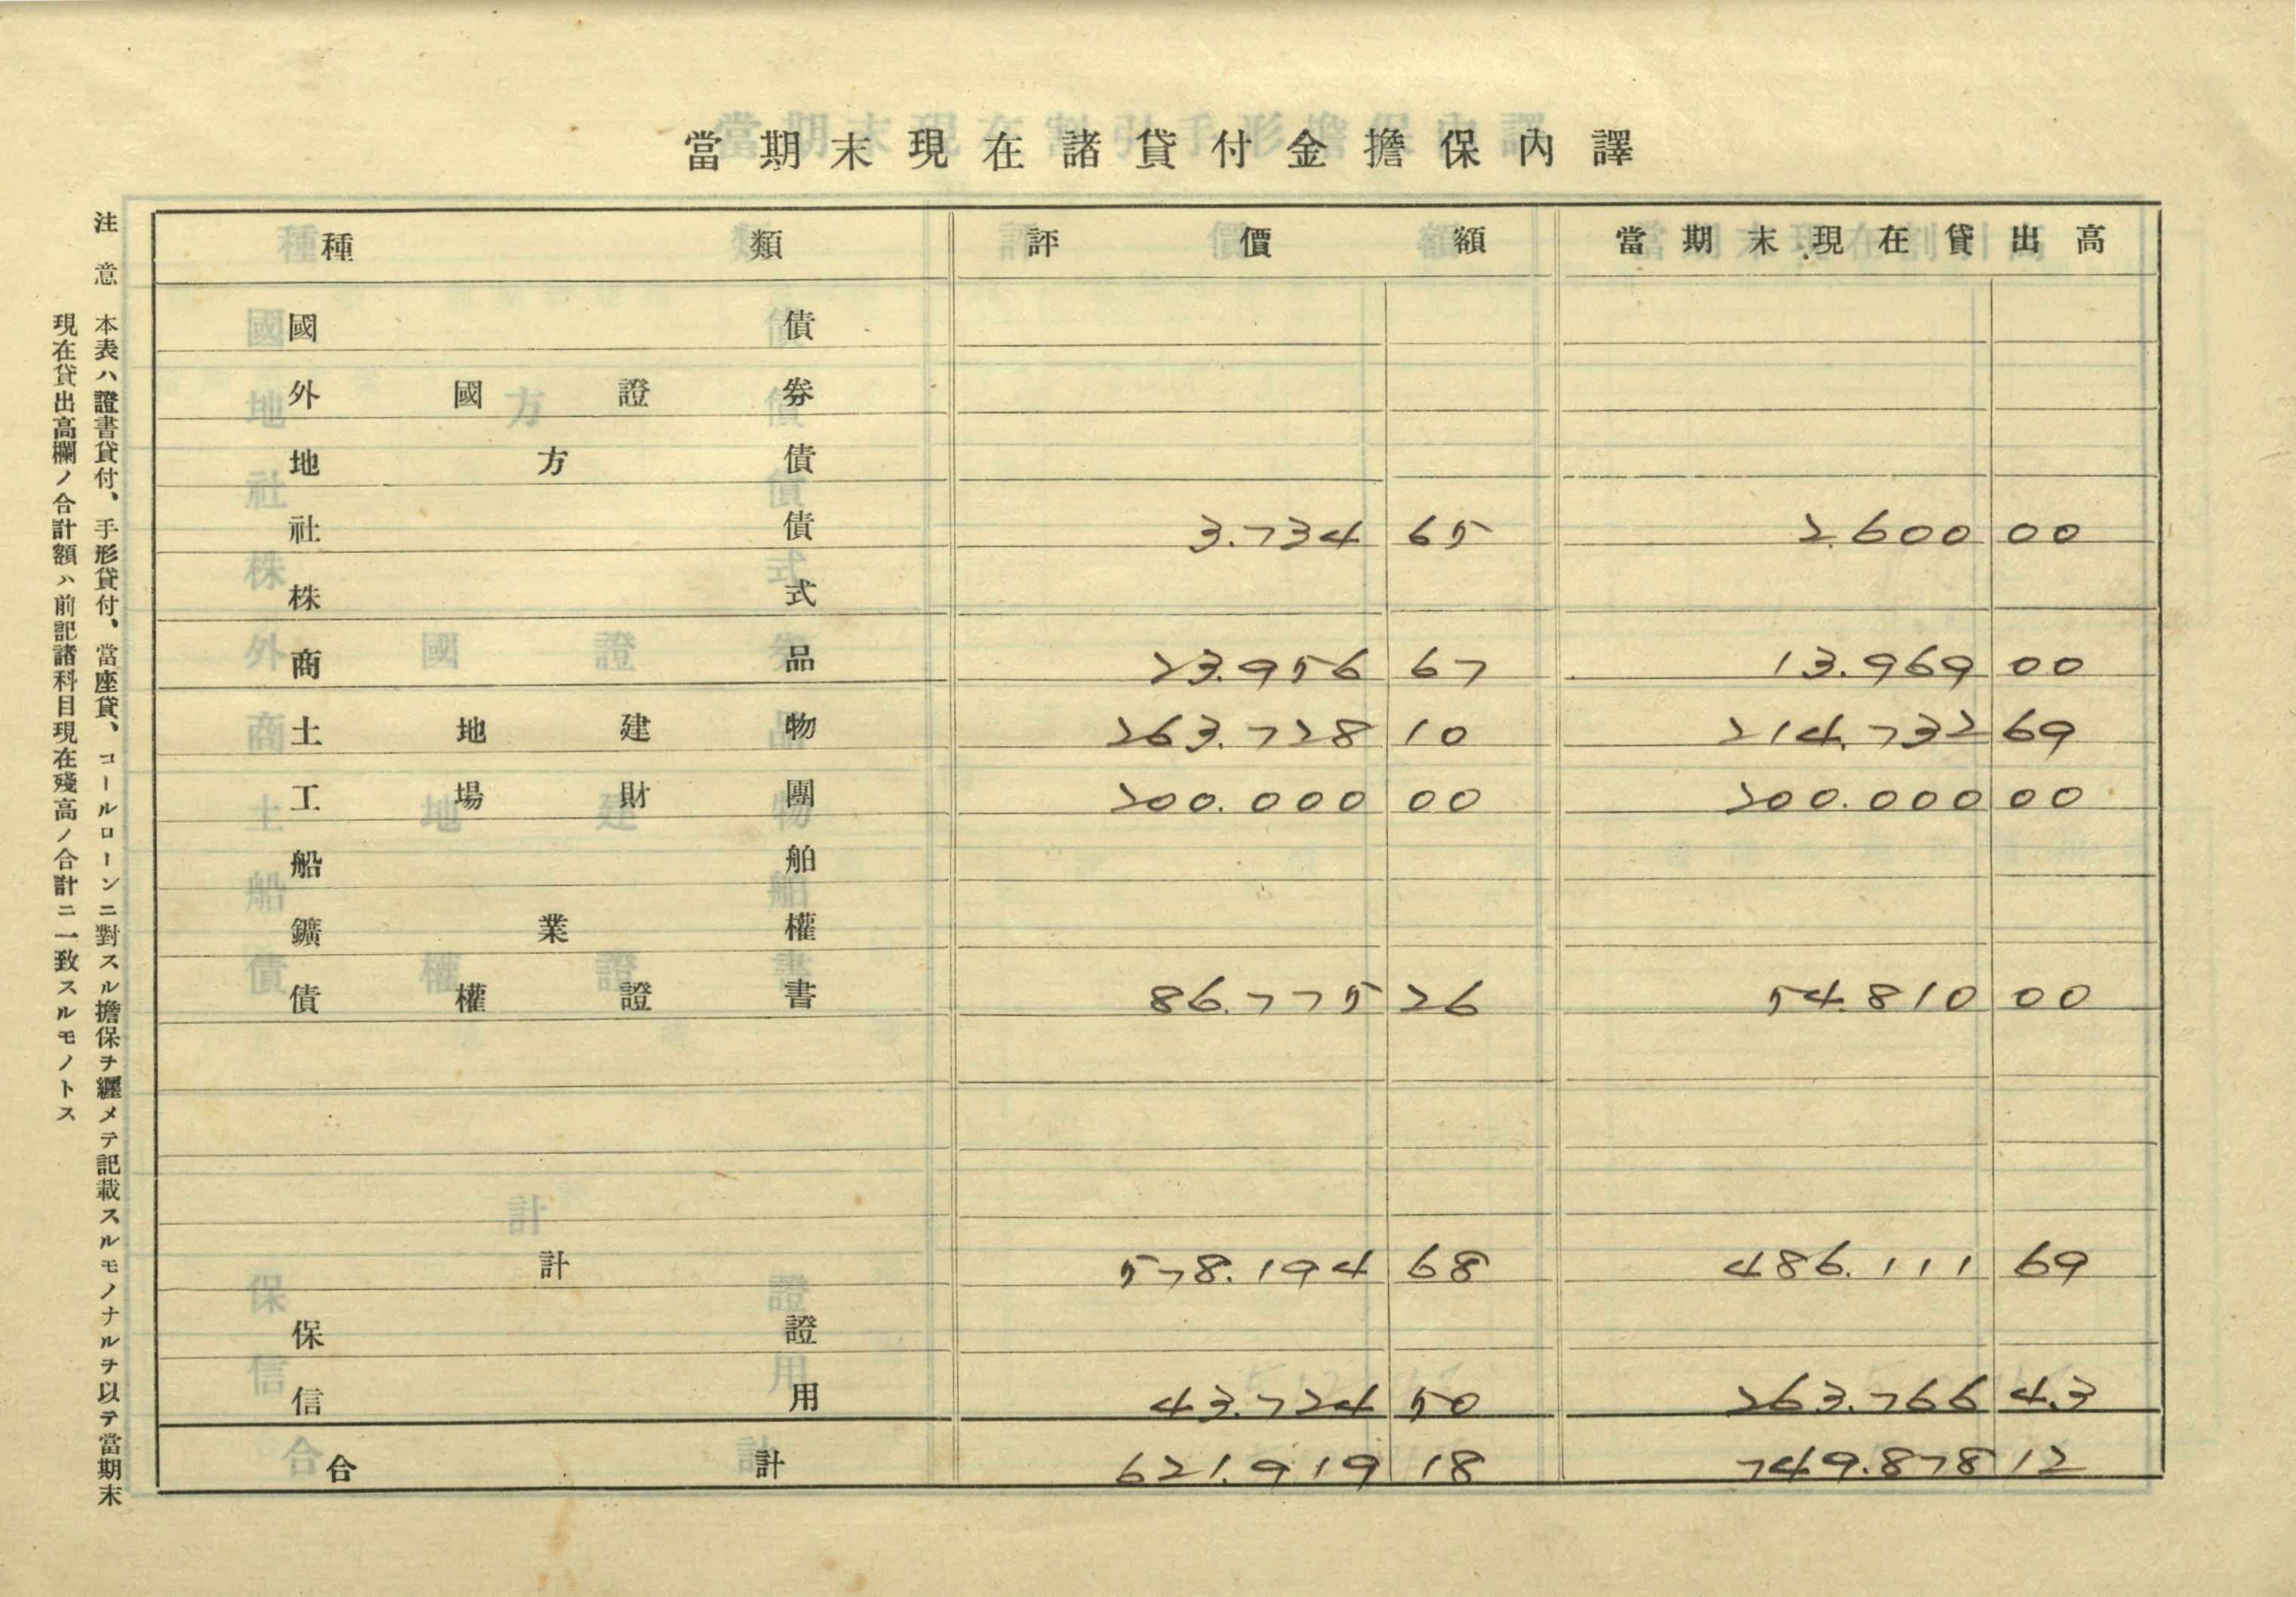 當期末現在諸貸付金擔保內譯
種類 評價額 當期末現在貸出高
國債
外國證券
地方債
社債 3.734 65 2.600 00
株式
商品 23.956 67 13.969 00
土地建物 263.728 10 214.732 69
工場財團 200.000 00 200.000 00
船舶
鑛業權
債權證書 86.775 26 54.810 00
計 578.194 68 486.111 69
保證
信用 43.724 50 263.766 43
合計 621.919 18 749.878 12
注意 本表ハ證書貸付、手形貸付、當座貸、コールローンニ對スル擔保ヲ纒メテ記載スルモノナルヲ以テ當期末
現在貸出高欄ノ合計額ハ前記諸科目現在殘高ノ合計ニ一致スルモノトス